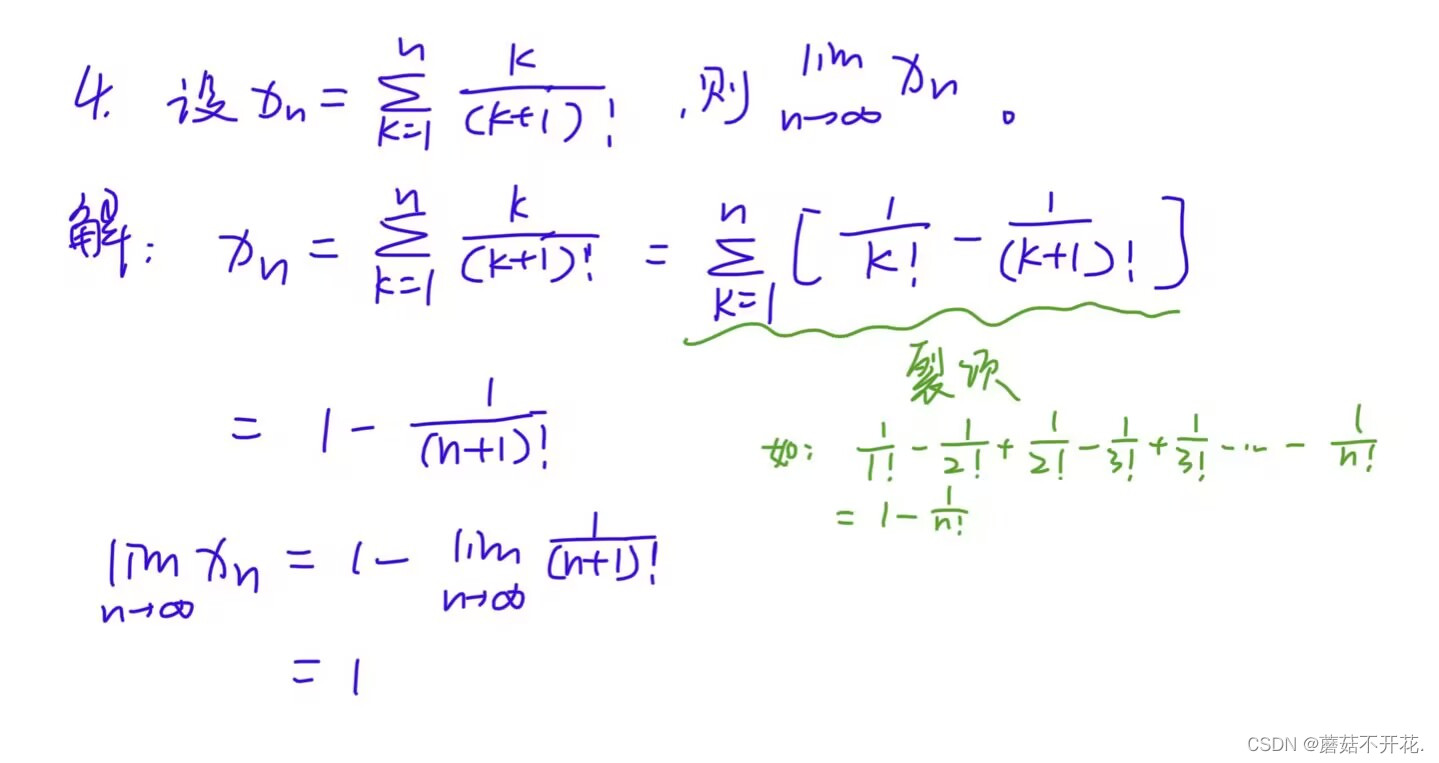 4. 设 xₙ = ∑_{k=1}^{n} k/(k+1)! ,则 lim_{n→∞} xₙ 。
解: xₙ = ∑_{k=1}^{n} k/(k+1)! = ∑_{k=1}^{n} [ 1/k! − 1/(k+1)! ]
裂项
= 1 − 1/(n+1)!
如: 1/1! − 1/2! + 1/2! − 1/3! + 1/3! − ... − 1/n!
= 1 − 1/n!
lim_{n→∞} xₙ = 1 − lim_{n→∞} 1/(n+1)!
= 1
CSDN @蘑菇不开花.